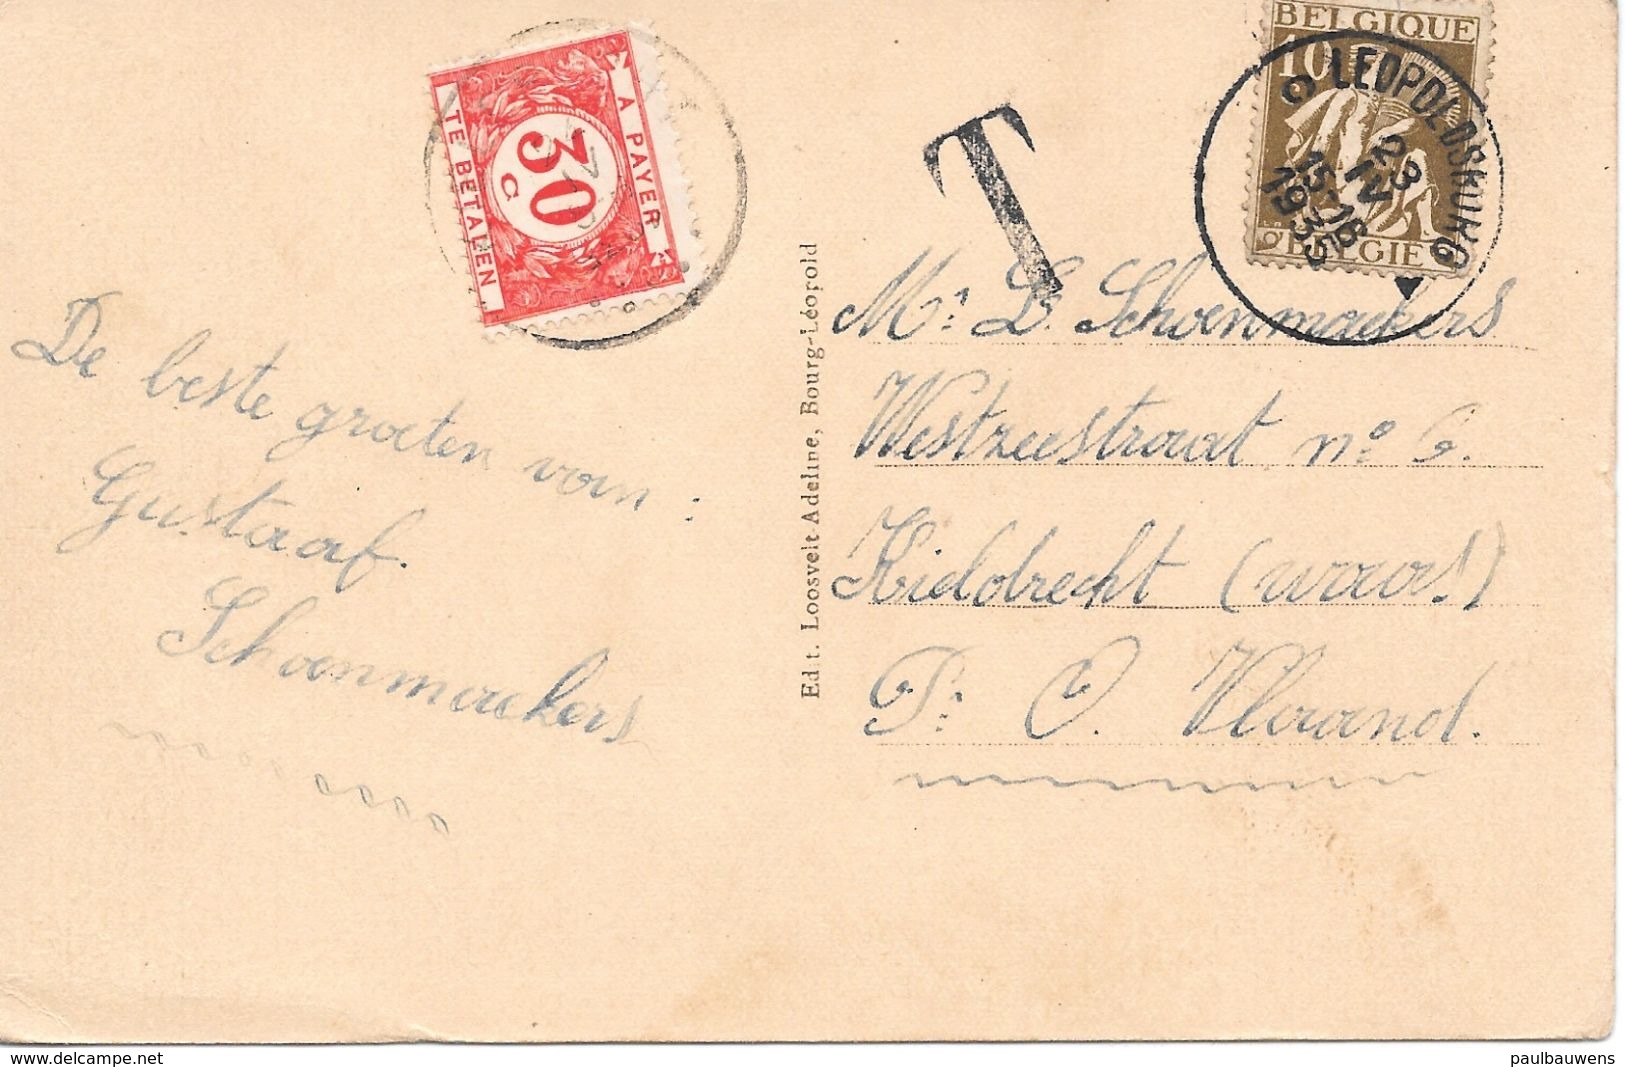 BELGIQUE
10
BELGIE
LEOPOLDSBURG
C
23
IV
15-16
1935
T
A PAYER
30
C
TE BETALEN
De beste groeten van :
Gustaaf.
Schoenmaekers
Edit. Loosvelt-Adeline, Bourg-Léopold
Mr. L. Schoenmaekers
Westzeestraat no 6.
Kieldrecht (waas!)
Pr. O. Vlaand.
delcampe.net
paulbauwens